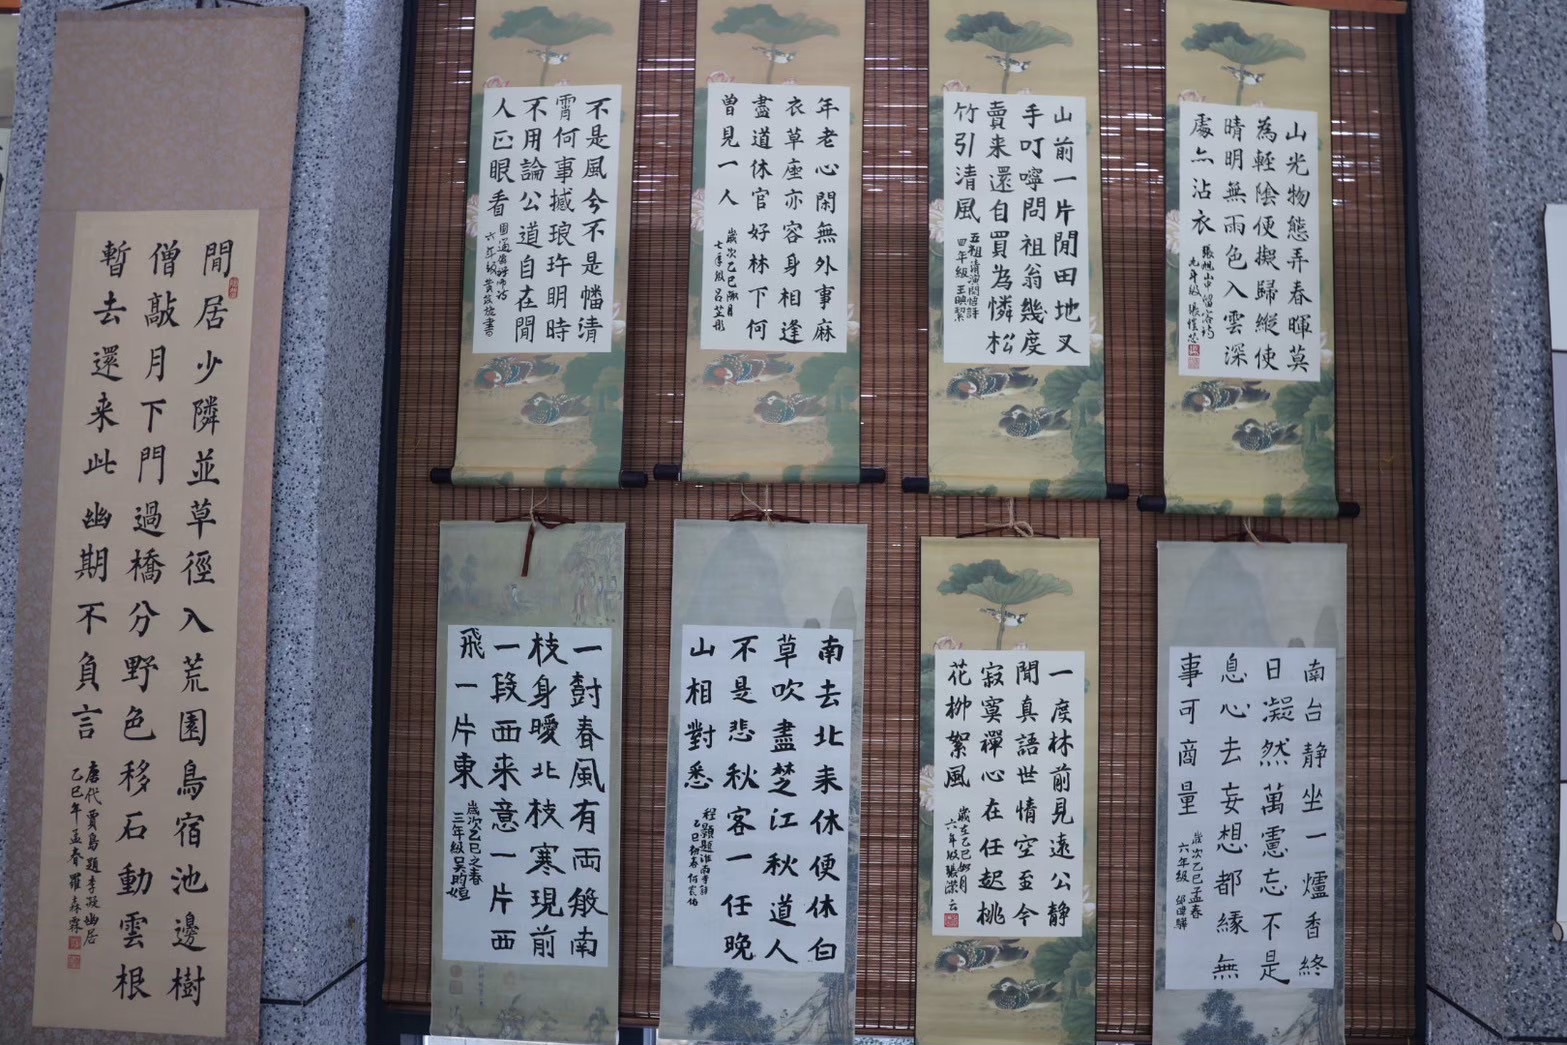 山光物態弄春暉莫
為輕陰便擬歸縱使
晴明無雨色入雲深
處亦沾衣
山前一片閒田地又
手叮嚀問祖翁幾度
賣来還自買為憐松
竹引清風
四年級王
年老心閒無外事麻
衣草座亦容身相逢
盡道休官好林下何
曾見一人
歲次乙巳
不是風兮不是幡清
霄何事撼琅玕明時
不用論公道自在閒
人正眼看
南台静坐一爐香終
日凝然萬慮忘不是
息心去妄想都緣無
事可商量
歲次乙巳孟春
六年級
一度林前見遠公静
聞真語世情空至今
寂寞禪心在任起桃
花柳絮風
南去北来休便休白
草吹盡楚江秋道人
不是悲秋客一任晚
山相對愁
程顥題淮南寺
一樹春風有兩般南
枝身暖北枝寒現前
一段西来意一片西
飛一片東
歲次乙巳之春
三年級吳
閒居少隣並草徑入荒園鳥宿池邊樹
僧敲月下門過橋分野色移石動雲根
暫去還来此幽期不負言
唐代賈島題李凝幽居
乙巳年孟春羅森霖